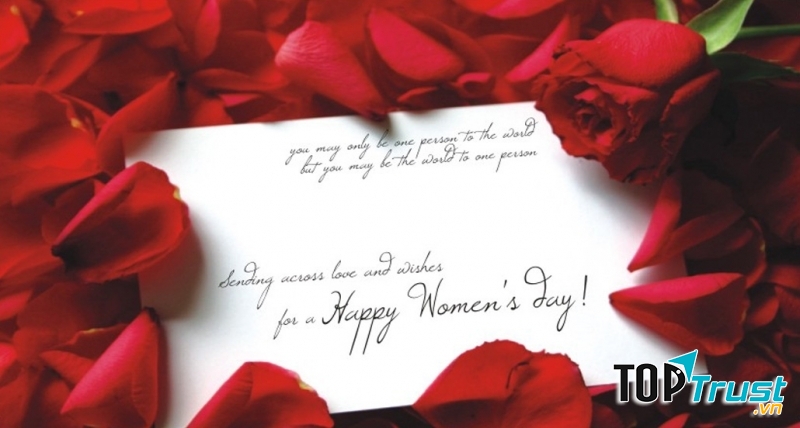 you may only be one person to the world
but you may be the world to one person
Sending across love and wishes
for a Happy Women's day!
TOPTrust
.vn